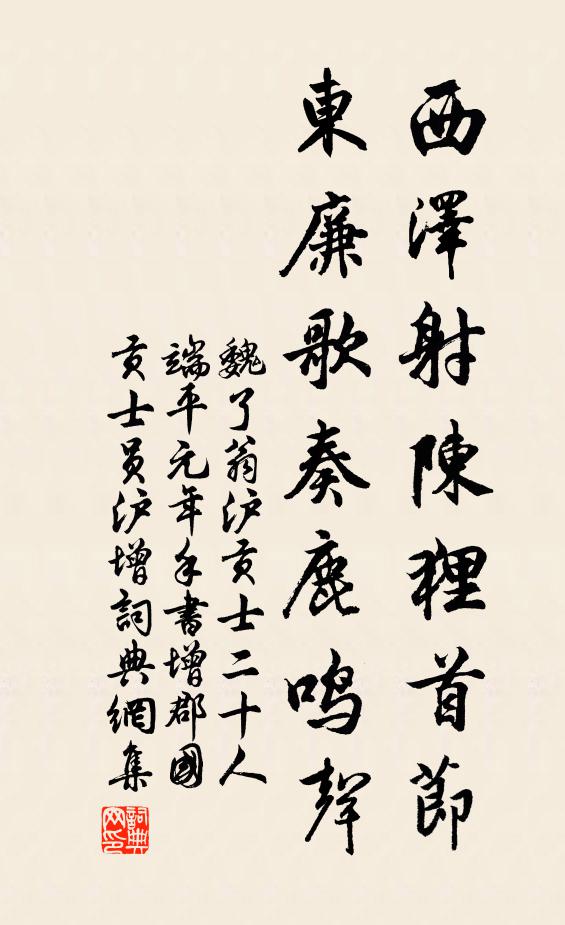 西澤射陳狸首節
東廉歌奏鹿鳴聲
魏了翁沪貢士二十人
端平元年手書增郡國
貢士員沪增詞典網集
詞典网印